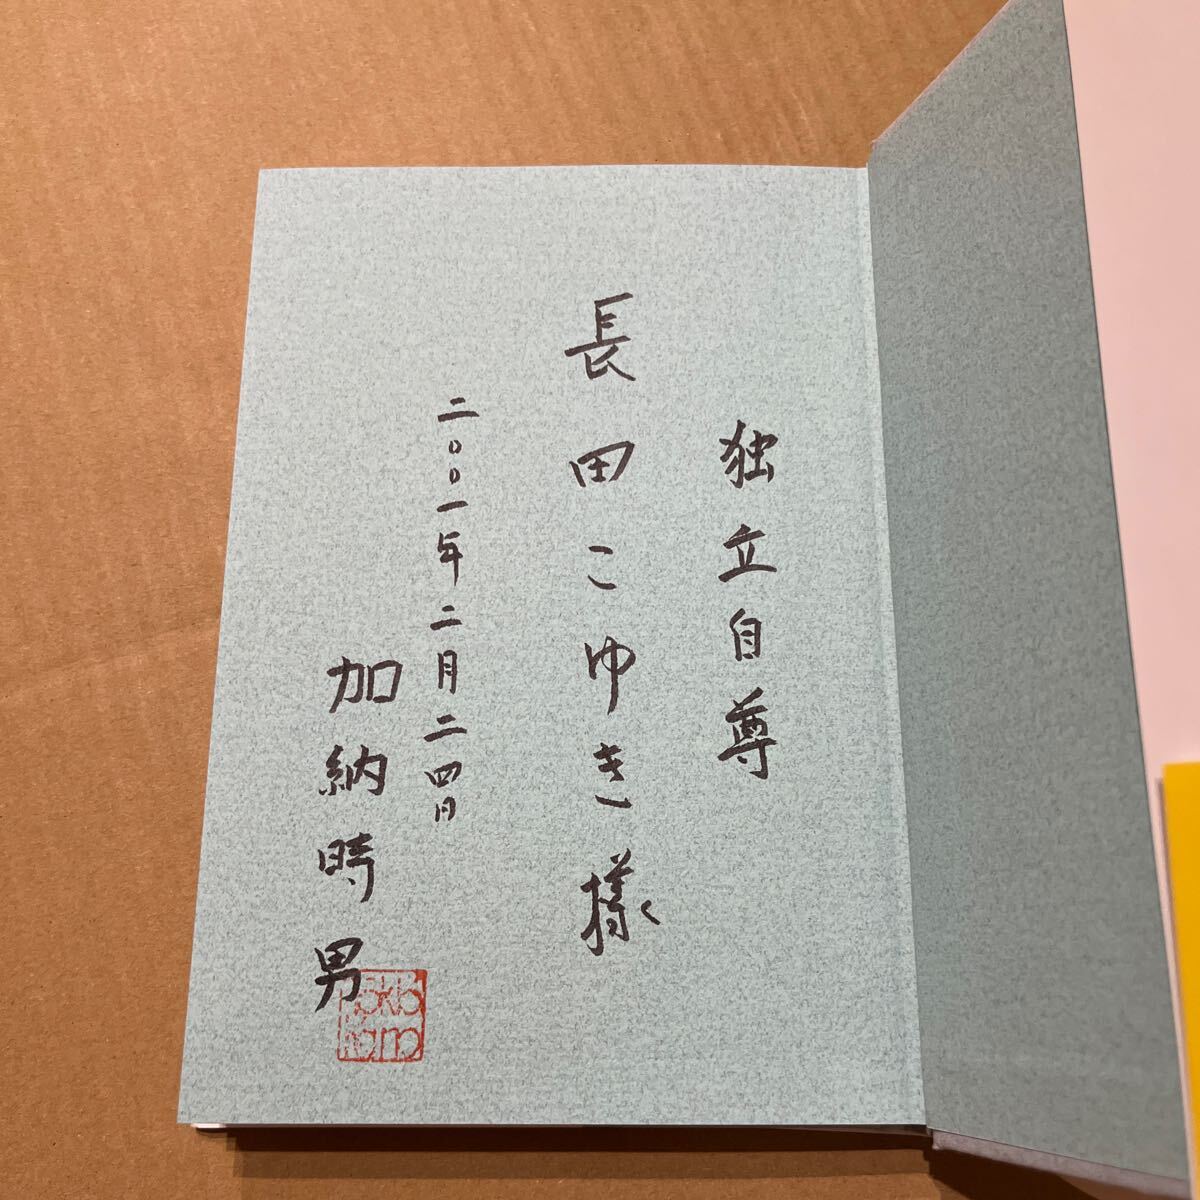 独立自尊
長田こゆき様
二〇〇一年二月二四日
加納時男